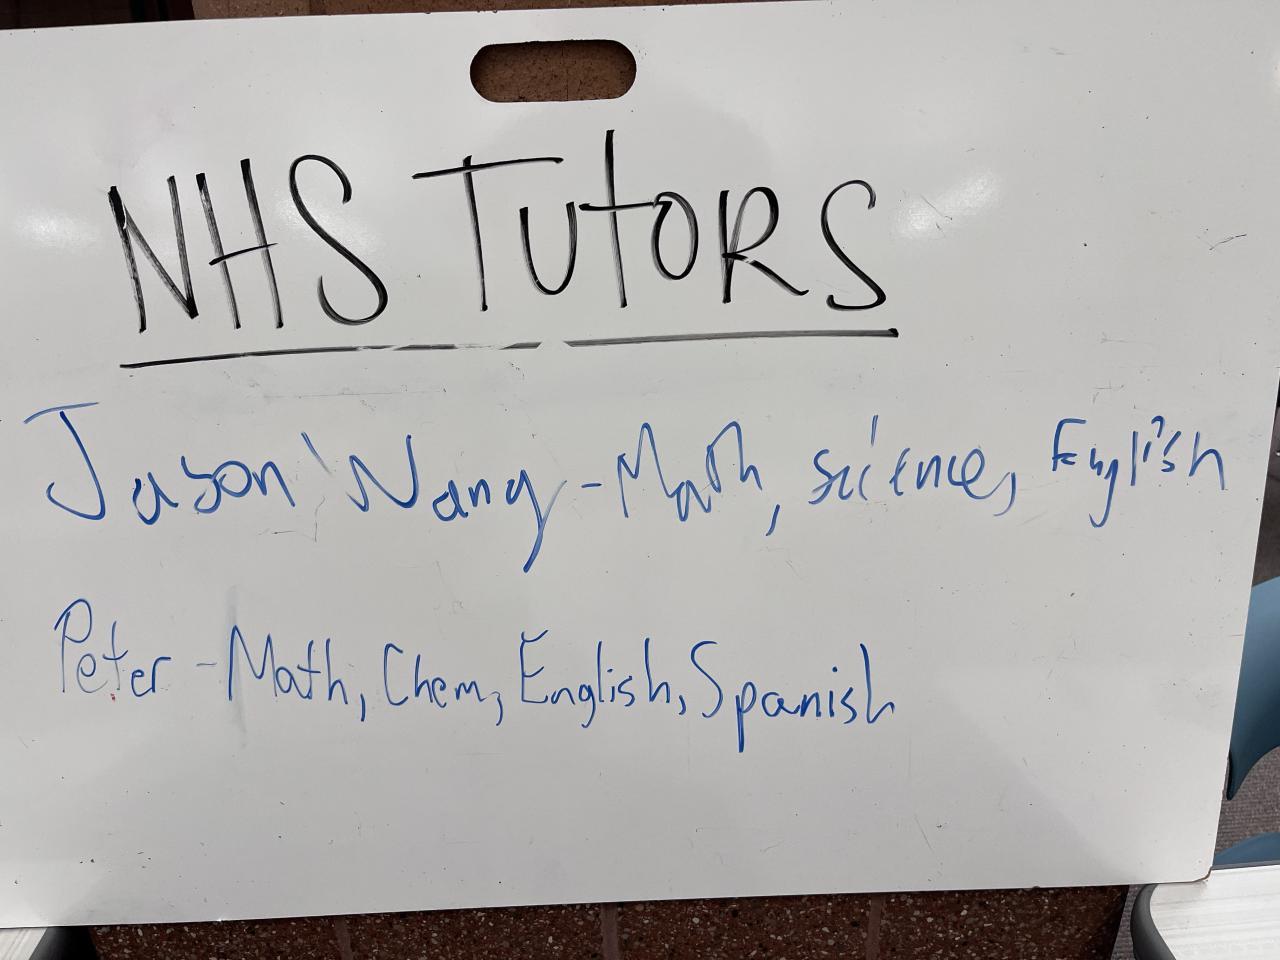 NHS TUtORS
Jason Wang - Math, science, English
Peter - Math, Chem, English, Spanish